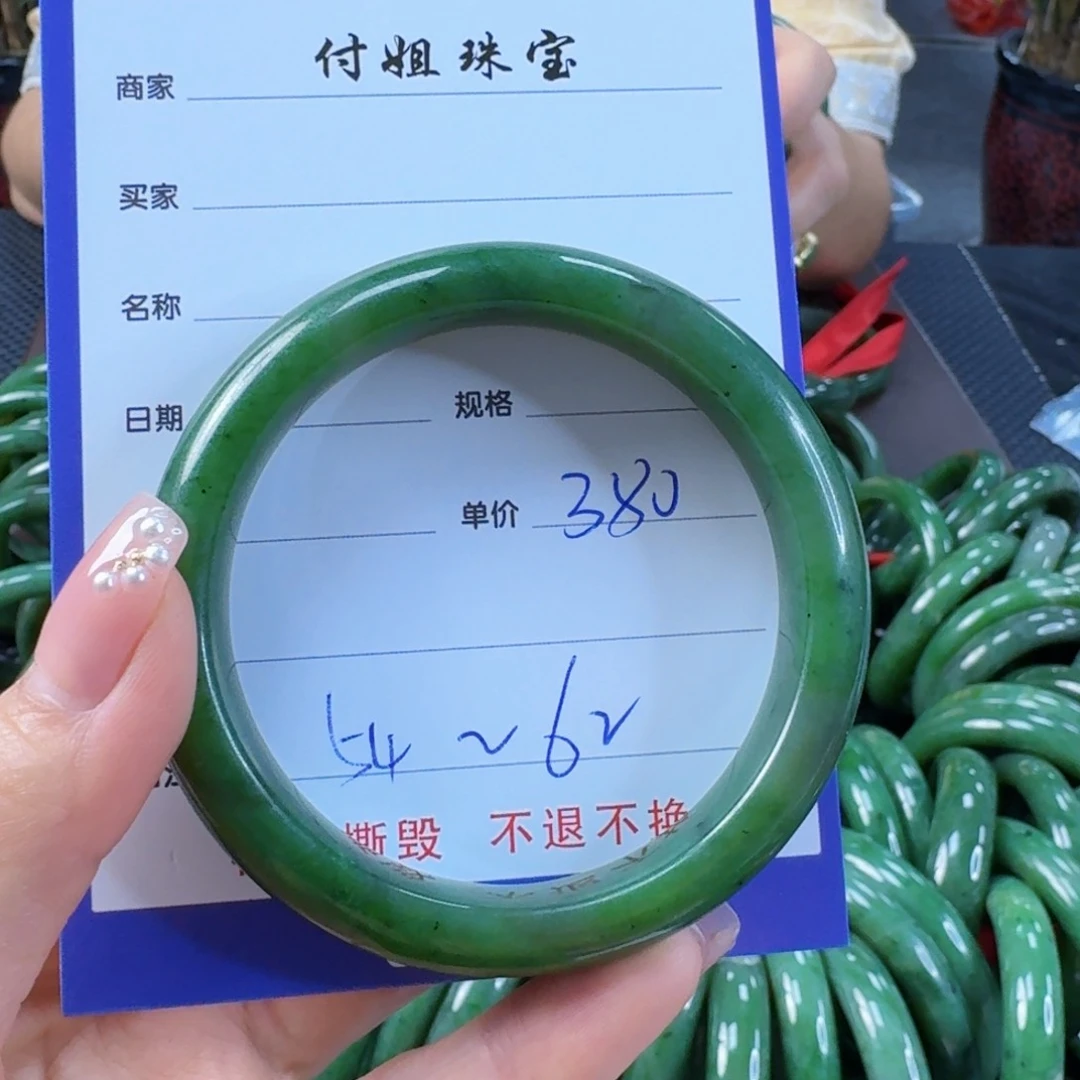 商家 付姐珠宝
买家
名称
日期 规格
单价 380
54~62
撕毁 不退不换